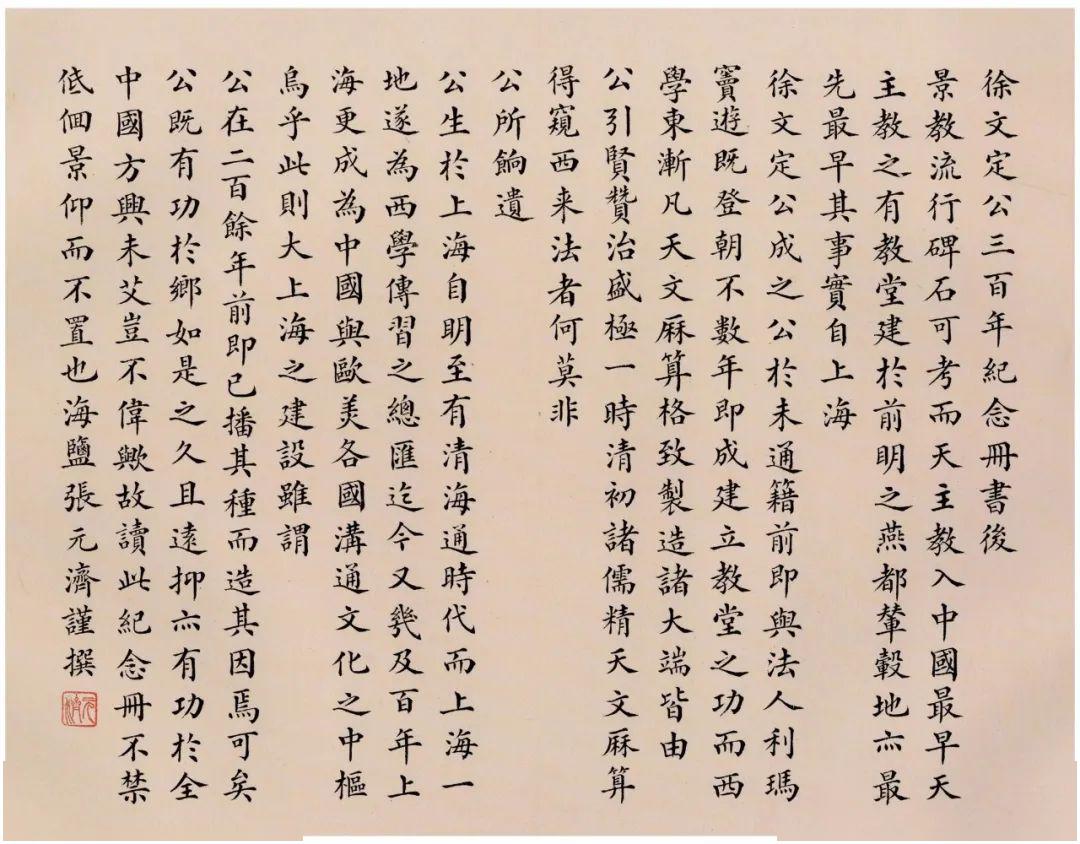 徐文定公三百年紀念冊書後
景教流行碑石可考而天主教入中國最早天
主教之有教堂建於前明之燕都輦轂地亦最
先最早其事實自上海
徐文定公成之公於未通籍前即與法人利瑪
竇遊既登朝不數年即成建立教堂之功而西
學東漸凡天文厤算格致製造諸大端皆由
公引賢贊治盛極一時清初諸儒精天文厤算
得窺西来法者何莫非
公所餉遺
公生於上海自明至有清海通時代而上海一
地遂為西學傳習之總匯迄今又幾及百年上
海更成為中國與歐美各國溝通文化之中樞
烏乎此則大上海之建設雖謂
公在二百餘年前即已播其種而造其因焉可矣
公既有功於鄉如是之久且遠抑亦有功於全
中國方興未艾豈不偉歟故讀此紀念冊不禁
低佪景仰而不置也海鹽張元濟謹撰
元濟